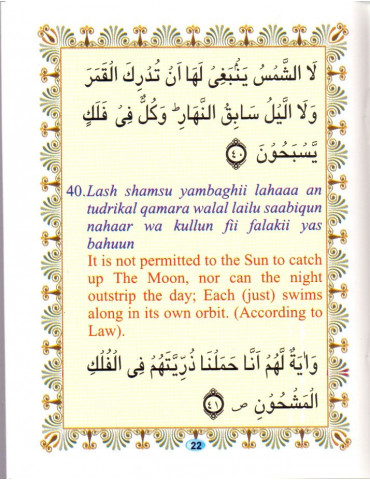 لَا الشَّمْسُ يَنْۢبَغِىْ لَهَاۤ اَنْ تُدْرِكَ الْقَمَرَ
وَلَا الَّيْلُ سَابِقُ النَّهَارِ ؕ وَكُلٌّ فِىْ فَلَكٍ
يَّسْبَحُوْنَ ﴿٤٠﴾
40.Lash shamsu yambaghii lahaaa an
tudrikal qamara walal lailu saabiqun
nahaar wa kullun fii falakii yas
bahuun
It is not permitted to the Sun to catch
up The Moon, nor can the night
outstrip the day; Each (just) swims
along in its own orbit. (According to
Law).
وَاٰيَةٌ لَّهُمْ اَنَّا حَمَلْنَا ذُرِّيَّتَهُمْ فِى الْفُلْكِ
الْمَشْحُوْنِ ص ﴿٤١﴾
22